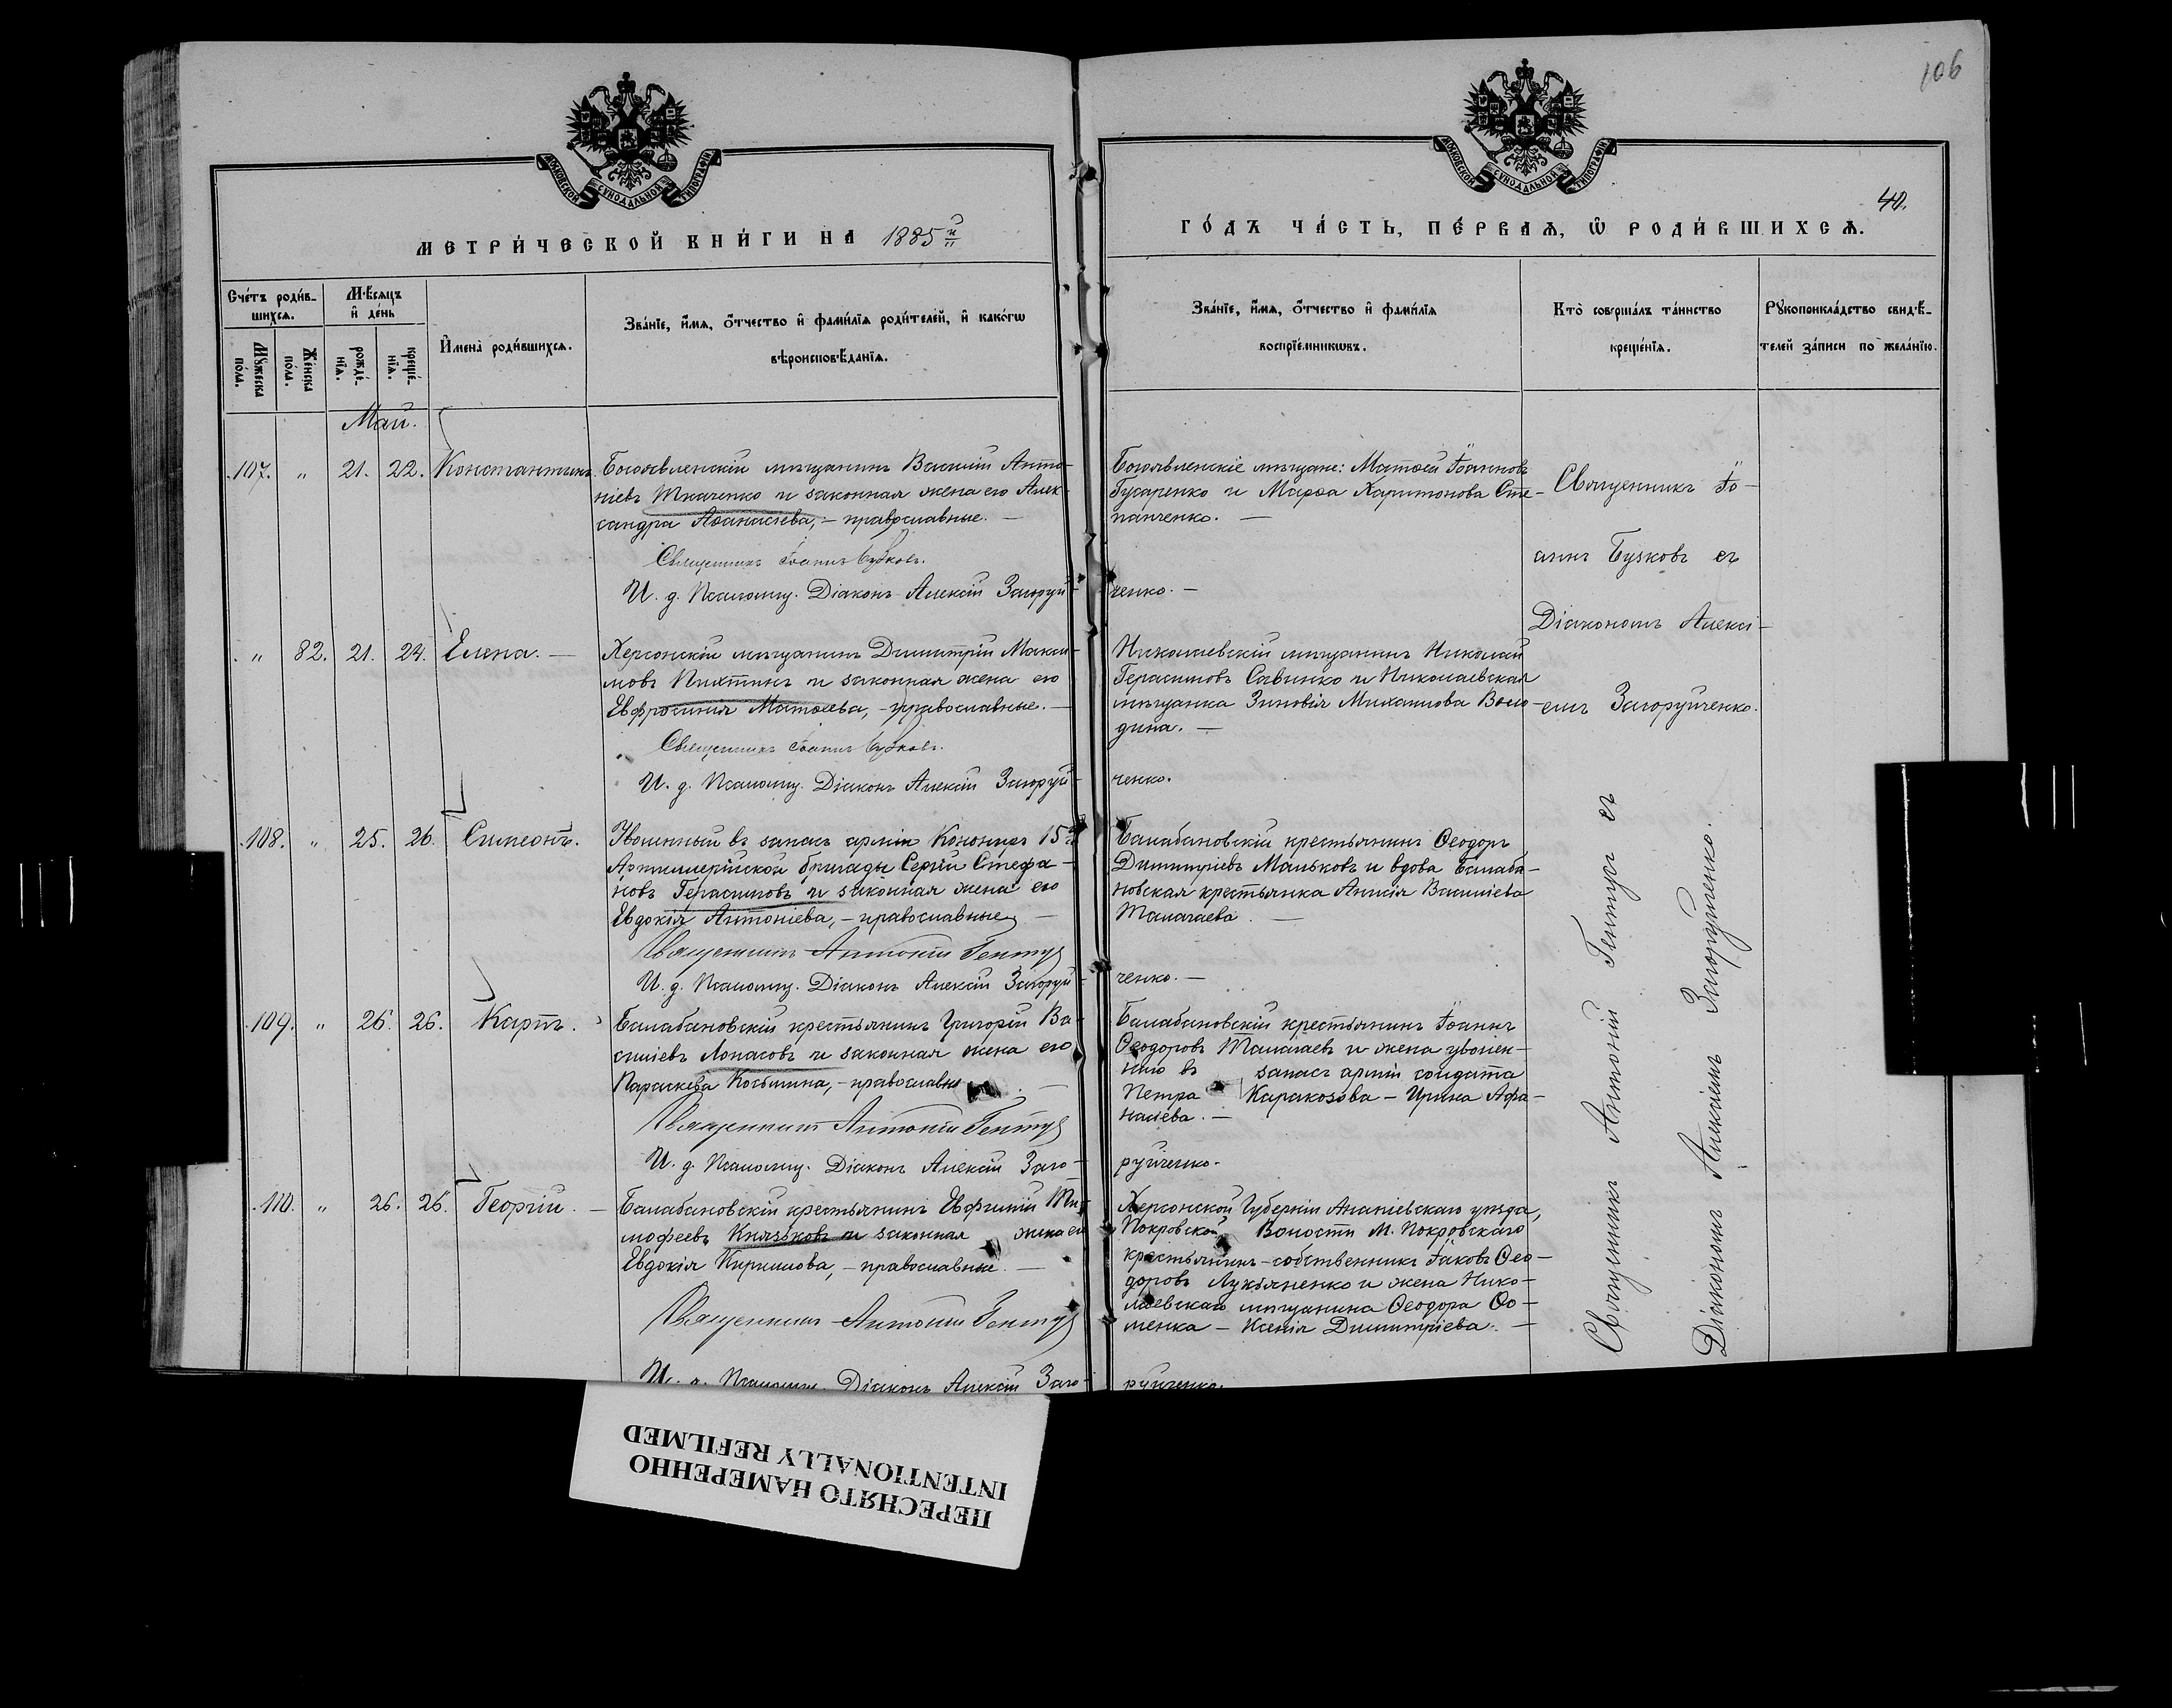 106
МОСКОВСКОЙ СѴНОДАЛЬНОЙ ТИПОГРАФІИ
МОСКОВСКОЙ СѴНОДАЛЬНОЙ ТИПОГРАФІИ
40.
МЕТРИ́ЧЕСКОЙ КНИ́ГИ НА 1885й
ГО́ДЪ ЧА́СТЬ, ПЕ́РВАѦ, Ѿ РОДИ́ВШИХСѦ.
Сче́тъ роди́в-
шихсѧ.
Мꙋ́жеска по́ла.
Же́нска по́ла.
Мѣ́сѧцъ
и҆ де́нь
рожде́-
нїѧ.
креще́-
нїѧ.
И҆мена̀ роди́вшихсѧ.
Зва́нїе, и҆́мѧ, ѻ҆́тчество и҆ фами́лїѧ роди́телей, и҆ како́гѡ
вѣроисповѣ́данїѧ.
Зва́нїе, и҆́мѧ, ѻ҆́тчество и҆ фами́лїѧ
воспрїе́мникѡвъ.
Кто̀ соверша́лъ та́инство
креще́нїѧ.
Рꙋкоприкла́дство свидѣ́-
телей за́писи по жела́нїю.
Май.
107. " 21. 22. Константинъ.
Богоявленскій мѣщанинъ Василій Анто-
ніевъ Ткаченко и законная жена его Алек-
сандра Аѳанасіева, – православные. –
Священникъ Іоаннъ Бузковъ.
И. д. Псаломщ. Діаконъ Алексій Загоруй-
Богоявленскіе мѣщане: Матѳей Іоанновъ
Гусаренко и Марѳа Харитонова Сте-
панченко. –
ченко. –
Священникъ Іо-
аннъ Бузковъ съ
Діакономъ Алексі-
емъ Загоруйченко.
" 82. 21. 24. Елена. –
Херсонскій мѣщанинъ Димитрій Макси-
мовъ Пихтинъ и законная жена его
Евфросинія Матѳеева, – православные. –
Священникъ Іоаннъ Бузковъ.
И. д. Псаломщ. Діаконъ Алексій Загоруй-
Николаевскій мѣщанинъ Николай
Герасимовъ Савинко и Николаевская
мѣщанка Зиновія Михаилова Воло-
дина. –
ченко.
108. " 25. 26. Симеонъ.
Уволенный въ запасъ арміи Канониръ 15й
Артиллерійской бригады Сергій Стефа-
новъ Герасимовъ и законная жена его
Евдокія Антоніева, – православные –
Священникъ Антоній Гентуе
И. д. Псаломщ. Діаконъ Алексій Загоруй-
Балабановскій крестьянинъ Ѳеодоръ
Димитріевъ Мальковъ и вдова Балаба-
новская крестьянка Анисія Василіева
Талагаева. –
ченко. –
109. " 26. 26. Карпъ.
Балабановскій крестьянинъ Григорій Ва-
силіевъ Лопасовъ и законная жена его
Параскева Косьмина, – православны
Священникъ Антоній Гентуе
И. д. Псаломщ. Діаконъ Алексій Заго-
Балабановскій крестьянинъ Іоаннъ
Ѳеодоровъ Талагаевъ и жена уволен-
наго въ запасъ арміи солдата
Петра Каракозова – Ирина Афа-
насіева. –
руйченко.
110. " 26. 26. Георгій. –
Балабановскій крестьянинъ Евфимій Ти-
мофеевъ Князьковъ и законная жена его
Евдокія Кириллова, – православные. –
Священникъ Антоній Гентуе
И. д. Псаломщ. Діаконъ Алексій Заго-
Херсонской Губерніи Ананіевскаго уѣзда,
Покровской Волости М. Покровскаго
крестьянинъ-собственникъ Іаковъ Ѳео-
доровъ Лукьяненко и жена Нико-
лаевскаго мѣщанина Ѳеодора Ѳо-
менка – Ксенія Димитріева. –
руйченко.
Священникъ Антоній Гентуе съ
Діакономъ Алексіемъ Загоруйченко.
ПЕРЕСНЯТО НАМЕРЕННО
INTENTIONALLY REFILMED